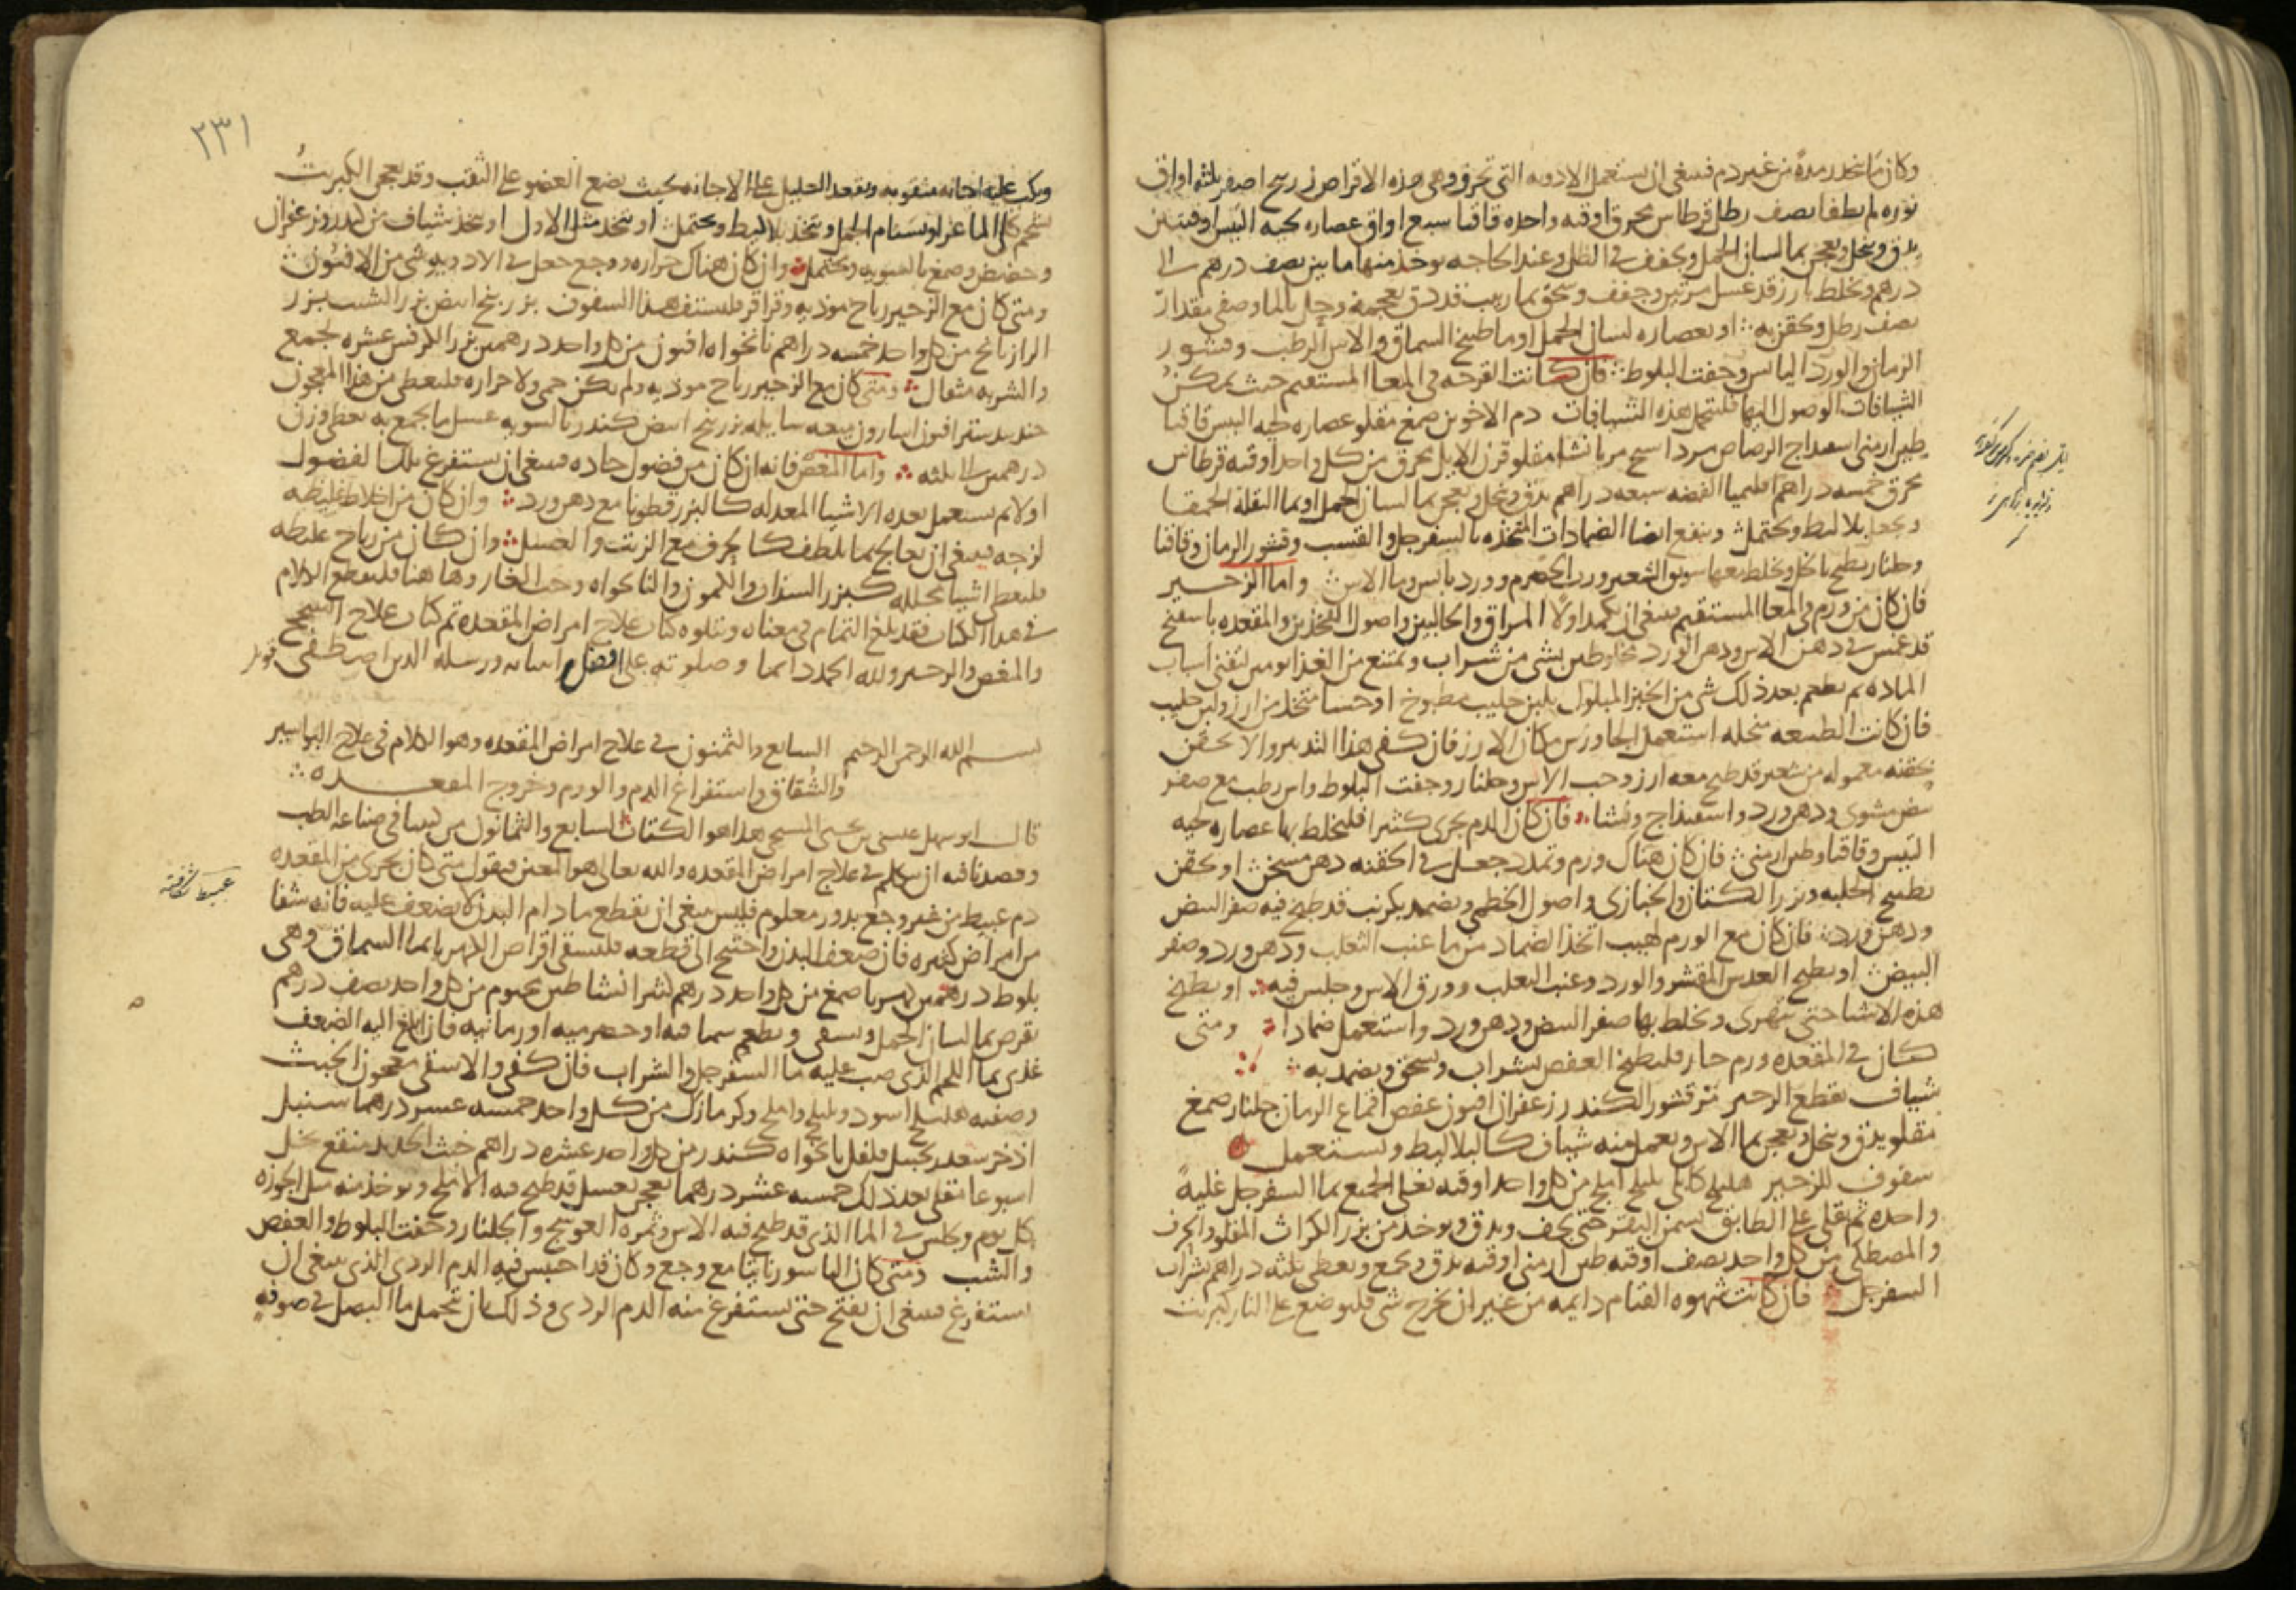 وكان ما ينحدر مدة من غير دم فينبغي ان يستعمل الادويه التي تحرق وهي هذه الاقراص زرنيخ اصفر ثلثه اواق
نوره لم تطفا نصف رطل قرطاس محرق اوقيه واحده قاقيا سبع اواق عصاره لحيه التيس اوقيتين
يدق وينخل ويعجن بما لسان الحمل ويجفف في الظل وعند الحاجه يوخذ منها ما بين نصف درهم الى
درهم ويخلط بارز قد غسل مرتين وجفف وسحق بما زبيب قد دق بعجمه وحل بالما وصفي مقدار
نصف رطل ويحقن به او بعصاره لسان الحمل او ما طبيخ السماق والاس الرطب وقشور
الرمان والورد اليابس وجفت البلوط فان كانت القرحه في المعا المستقيم حيث يمكن
الشيافات الوصول اليها فليتحمل هذه الشيافات دم الاخوين صمغ مقلو عصاره لحيه التيس قاقيا
طين ارمني اسفيداج الرصاص مرداسنج مربا نشا مقلو قرن الايل محرق من كل واحد اوقيه قرطاس
محرق خمسه دراهم اقليميا الفضه سبعه دراهم يدق وينخل ويعجن بما لسان الحمل او بما البقله الحمقا
ويجعل بلاليط ويحتمل وينفع ايضا الضمادات المتخذه بالسفرجل والقسب وقشور الرمان وقاقيا
وجلنار يطبخ بالخل ويخلط معها سويق الشعير ورب الحصرم وورد يابس وما الاس واما الزحير
فان كان من ورم في المعا المستقيم ينبغي ان يكمد اولا المراق والحالبين واصول الفخذين والمقعده باسفنج
قد غمس في دهن الاس ودهن الورد مخلوطين بشي من شراب ويمتنع من الغذا يومين لتفنى اسباب
الماده ثم يطعم بعد ذلك شي من الخبز المبلول بلبن حليب مطبوخ او حسا متخذ من ارز ولبن حليب
فان كانت الطبيعه منحله استعمل الجاورس مكان الارز فان كفى هذا التدبير والا يحقن
بحقنه معموله من شعير قد طبخ معه ارز وحب الاس وجلنار وجفت البلوط واس رطب مع صفر
بيض مشوي ودهن ورد واسفيداج ونشا فان كان الدم يجري كثيرا فليخلط بها عصاره لحيه
التيس وقاقيا وطين ارمني فان كان هناك ورم وتمدد جعل في الحقنه دهن مسخن او يحقن
بطبيخ الحلبه وبزر الكتان والخبازى واصول الخطمي ويضمد بكرنب قد طبخ فيه صفر البيض
ودهن ورد فان كان مع الورم لهيب اتخذ الضماد من ما عنب الثعلب ودهن ورد وصفر
البيض او يطبخ العدس المقشر والورد وعنب الثعلب وورق الاس وجلس فيه او يطبخ
هذه الاشيا حتى تتهرى ويخلط بها صفر البيض ودهن ورد واستعمل ضمادا ومتى
كان في المقعده ورم حار فليطبخ العفص بشراب ويسحق ويضمد به
شياف يقطع الزحير مر قشور الكندر زعفران افيون عفص اقماع الرمان جلنار صمغ
مقلو يدق وينخل ويعجن بما الاس ويعمل منه شياف كالبلاليط ويستعمل
سفوف للزحير هليلج كابلي بليلج املج من كل واحد اوقيه يغلى الجميع بما السفرجل غليه
واحده ثم يقلى على الطابق بسمن البقر حتى يجف ويدق ويوخذ من بزر الكراث المقلو والحرف
والمصطكى من كل واحد نصف اوقيه طين ارمني اوقيه يدق ويجمع ويعطى ثلثه دراهم بشراب
السفرجل فان كانت شهوه القيام دايمه من غير ان يخرج شي فليوضع على النار كبريت
٢٣١
ويكب عليه اجانه مثقوبه ويقعد العليل على الاجانه بحيث يضع العضو على الثقب وقد يعجن الكبريت
بشحم كلى الماعز او بسنام الجمل ويتخذ بلاليط ويحتمل او يتخذ مثل الاول او يتخذ شياف من كندر وزعفران
وحضض وصمغ بالسويه ويحتمل وان كان هناك حراره ووجع جعل في الادويه شي من الافيون
ومتى كان مع الزحير رياح موذيه وقراقر فليستف هذا السفوف بزر بنج ابيض بزر الشبث بزر
الرازيانج من كل واحد خمسه دراهم نانخواه افيون من كل واحد درهمين بزر الكرفس عشره يجمع
والشربه مثقال ومتى كان مع الزحير رياح موذيه ولم يكن حمى ولا حراره فليعطى من هذا المعجون
جندبيدستر افيون اسارون ميعه سايله بزر بنج ابيض كندر بالسويه عسل ما يجمع به يعطى وزن
درهمين الى ثلثه واما المغص فانه ان كان من فضول حاده فينبغي ان يستفرغ تلك الفضول
اولا ثم يستعمل بعده الاشيا المعدله كالبزرقطونا مع دهن ورد وان كان من اخلاط غليظه
لزجه فينبغي ان يعالج بما يلطف كالحرف مع الزيت والعسل وان كان من رياح غليظه
فليعطى اشيا تحلله كبزر السذاب والكمون والنانخواه وحب الغار وها هنا فليقطع الكلام
في هذا الكتاب فقد بلغ التمام في معناه ويتلوه كتاب علاج امراض المقعده تم كتاب علاج السحج
والمغص والزحير ولله الحمد دايما وصلوته على افضل انبيايه ورسله الذين اصطفى
بسم الله الرحمن الرحيم السابع والثمنون في علاج امراض المقعده وهو الكلام في علاج البواسير
والشقاق واستفراغ الدم والورم وخروج المقعده
قال ابو سهل عيسى بن يحيى المسيحي هذا هو الكتاب السابع والثمانون من كتبنا في صناعه الطب
وقصدنا فيه ان نتكلم في علاج امراض المقعده والله تعالى هو المعين فنقول متى كان يجري من المقعده
دم عبيط من غير وجع بدور معلوم فليس ينبغي ان يقطع ما دام البدن لا يضعف عليه فانه شفا
من امراض كثيره فان ضعف البدن واحتيج الى قطعه فليسقى اقراص الكهربا بما السماق وهي
بلوط درهمين كهربا صمغ من كل واحد درهم كثيرا نشا طين مختوم من كل واحد نصف درهم
يقرص بما لسان الحمل ويسقى ويطعم سماقيه او حصرميه او رمانيه فان بلغ اليه الضعف
غذي بما اللحم الذي صب عليه ما السفرجل والشراب فان كفى والا سقي معجون الخبث
وصفته هليلج اسود وبليلج واملج وكزمازك من كل واحد خمسه عشر درهما سنبل
اذخر سعد زنجبيل فلفل نانخواه كندر من كل واحد عشره دراهم خبث الحديد منقع بخل
اسبوعا مقلى بعد ذلك خمسه عشر درهما يعجن بعسل قد طبخ فيه الاملج ويوخذ منه مثل الجوزه
كل يوم ويجلس في الما الذي قد طبخ فيه الاس وثمره العوسج والجلنار وجفت البلوط والعفص
والشب ومتى كان الباسور ناتيا مع وجع وكان قد احتبس فيه الدم الردي الذي ينبغي ان
يستفرغ فينبغي ان يفتح حتى يستفرغ منه الدم الردي وذلك بان يتحمل ما البصل في صوفه